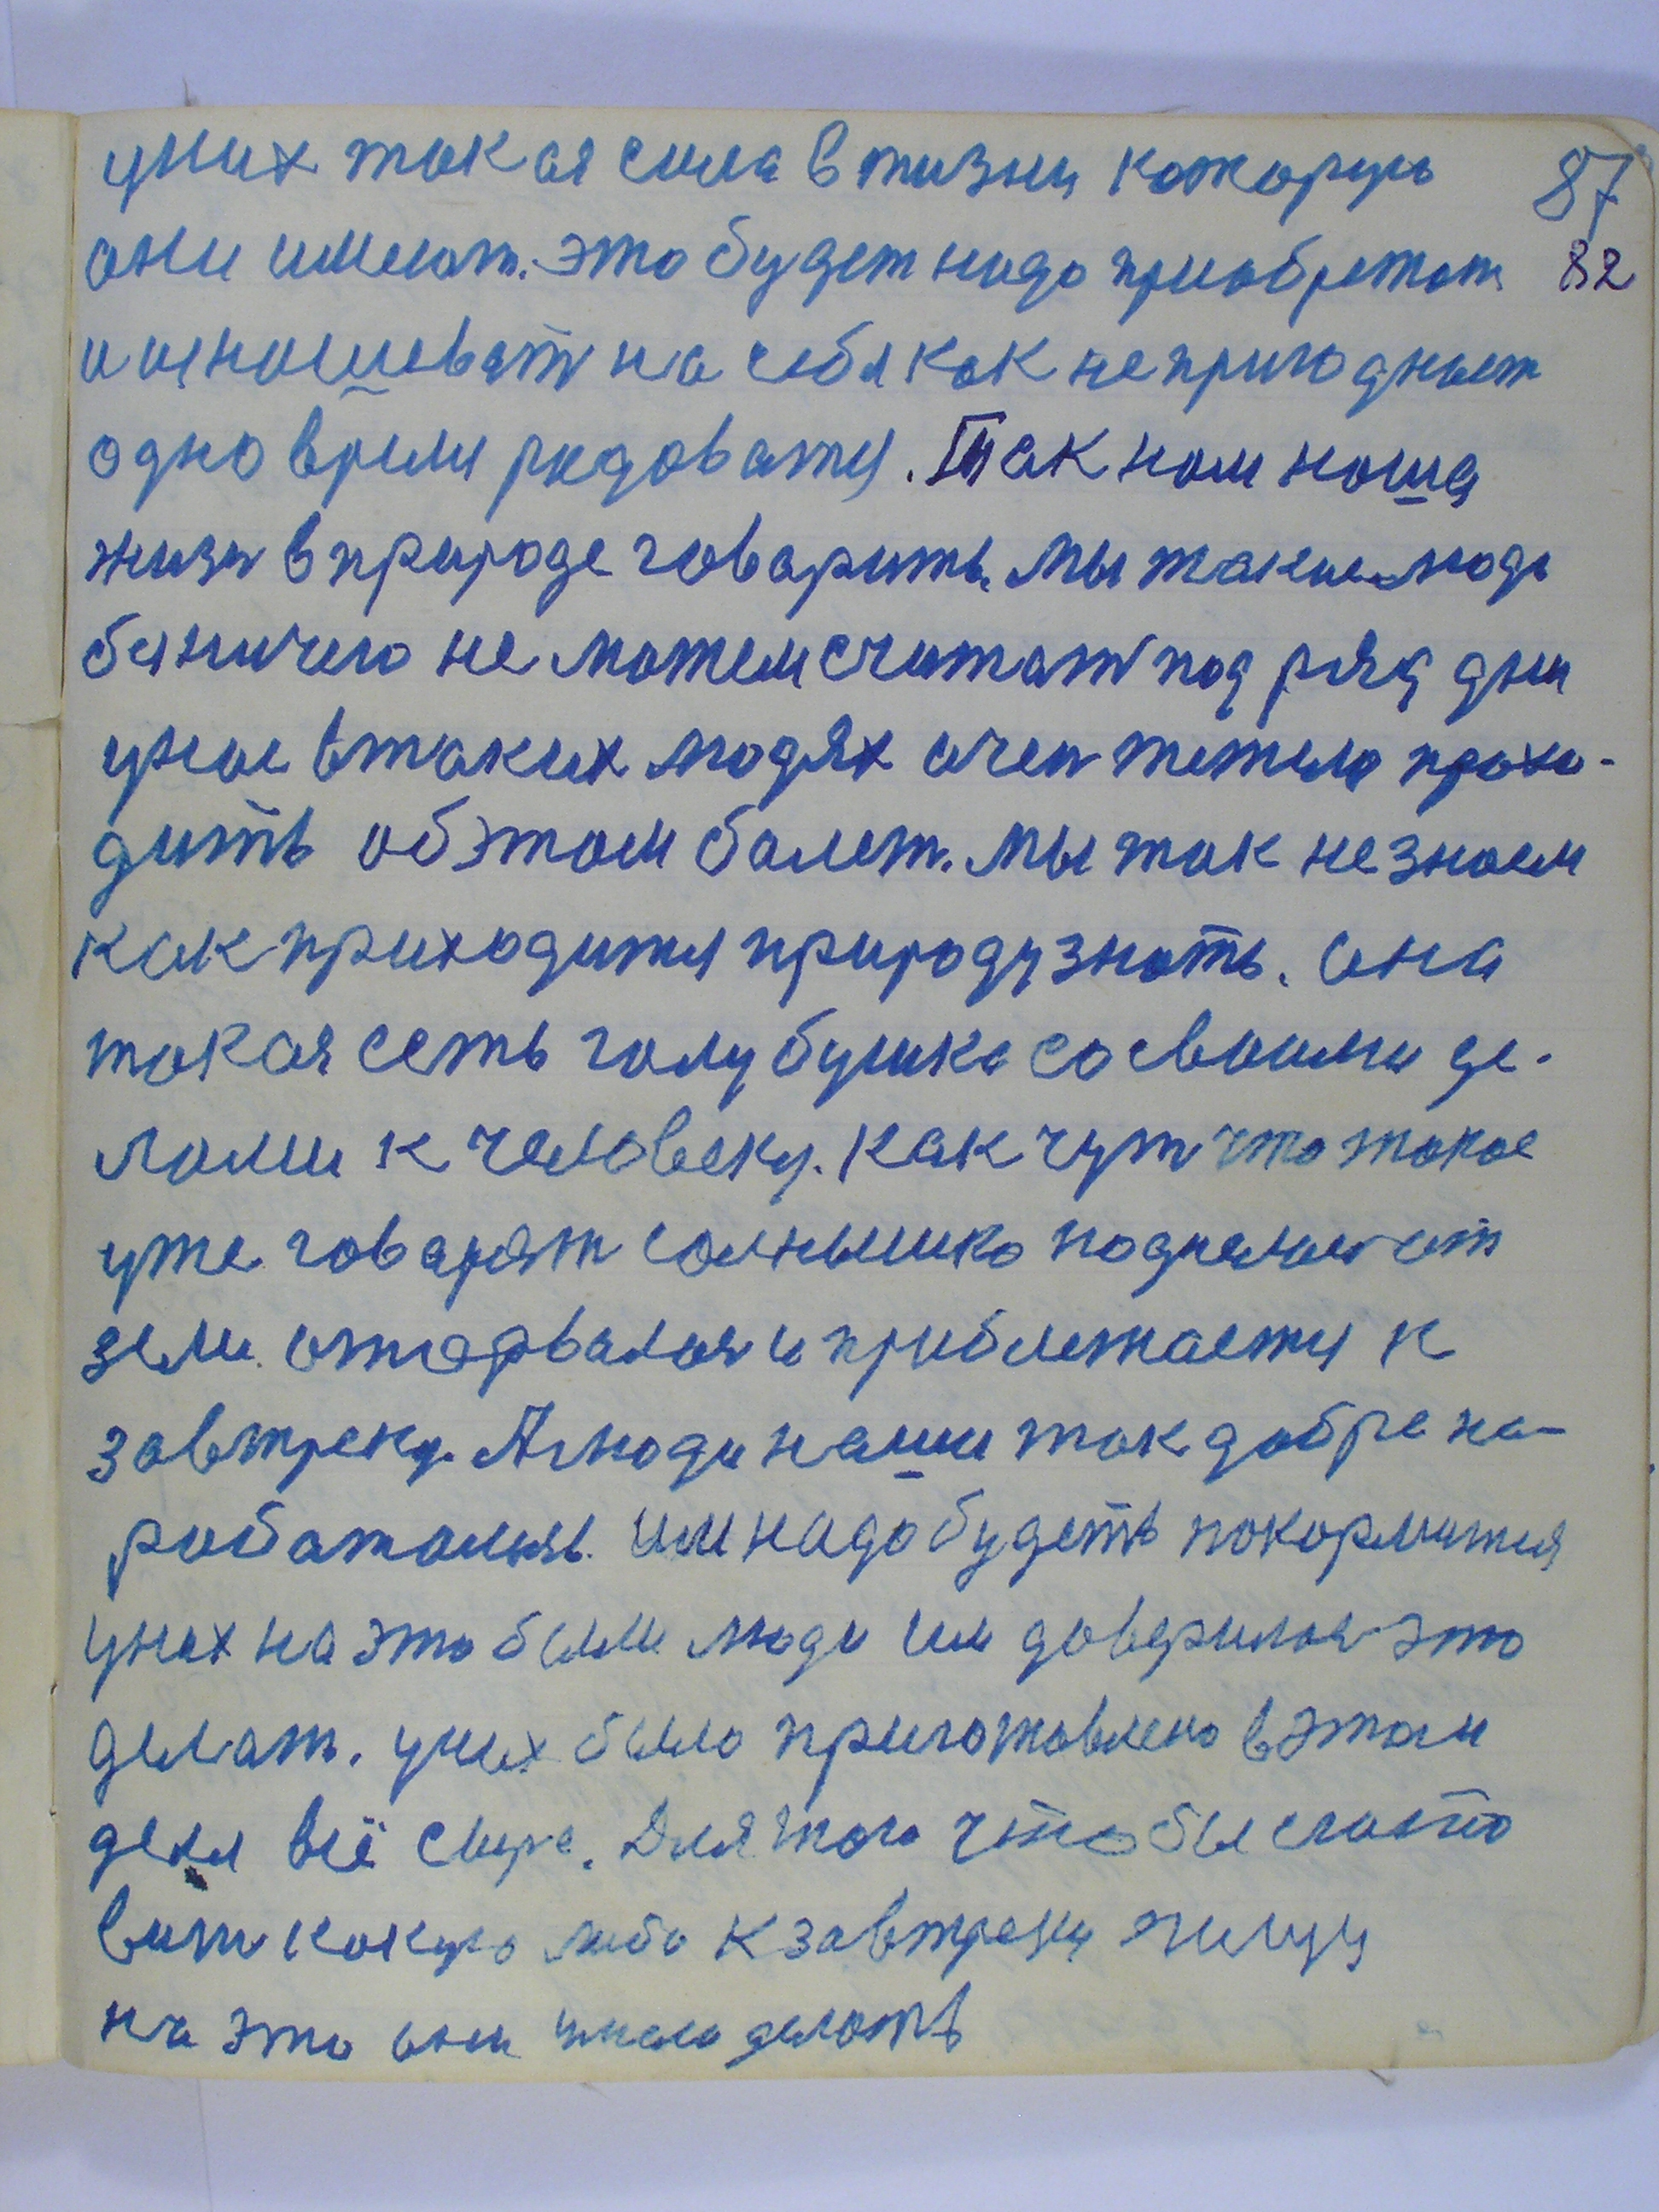 уних такая сила в жизни которую 87
они имеют. это будет надо приобретат 82
и изнашеват на себя как непригоднаст
одно время радоватся. Так нам наша
жизн в природе говарить. мы такие люде
без ничего не можем считат под ряд дни
унас втаких людях очен тежело прохо-
дить об этом болет. мы так незнаем
как приходится природу знать. она
такая есть голубушка со своими де-
лами к человеку. Как чут что такое
уже говарят солнышко поднялась от
земли оторвалая и приблежается к
завтреку. А люди наши так добре на-
работались. им надо будеть покормится
уних на это были люде им доверилое это
делат. уних было приготовлено в этом
деля всё сыре. Для того чтобы сгасто
вит какую либо к завтреку пищу
на это они делать